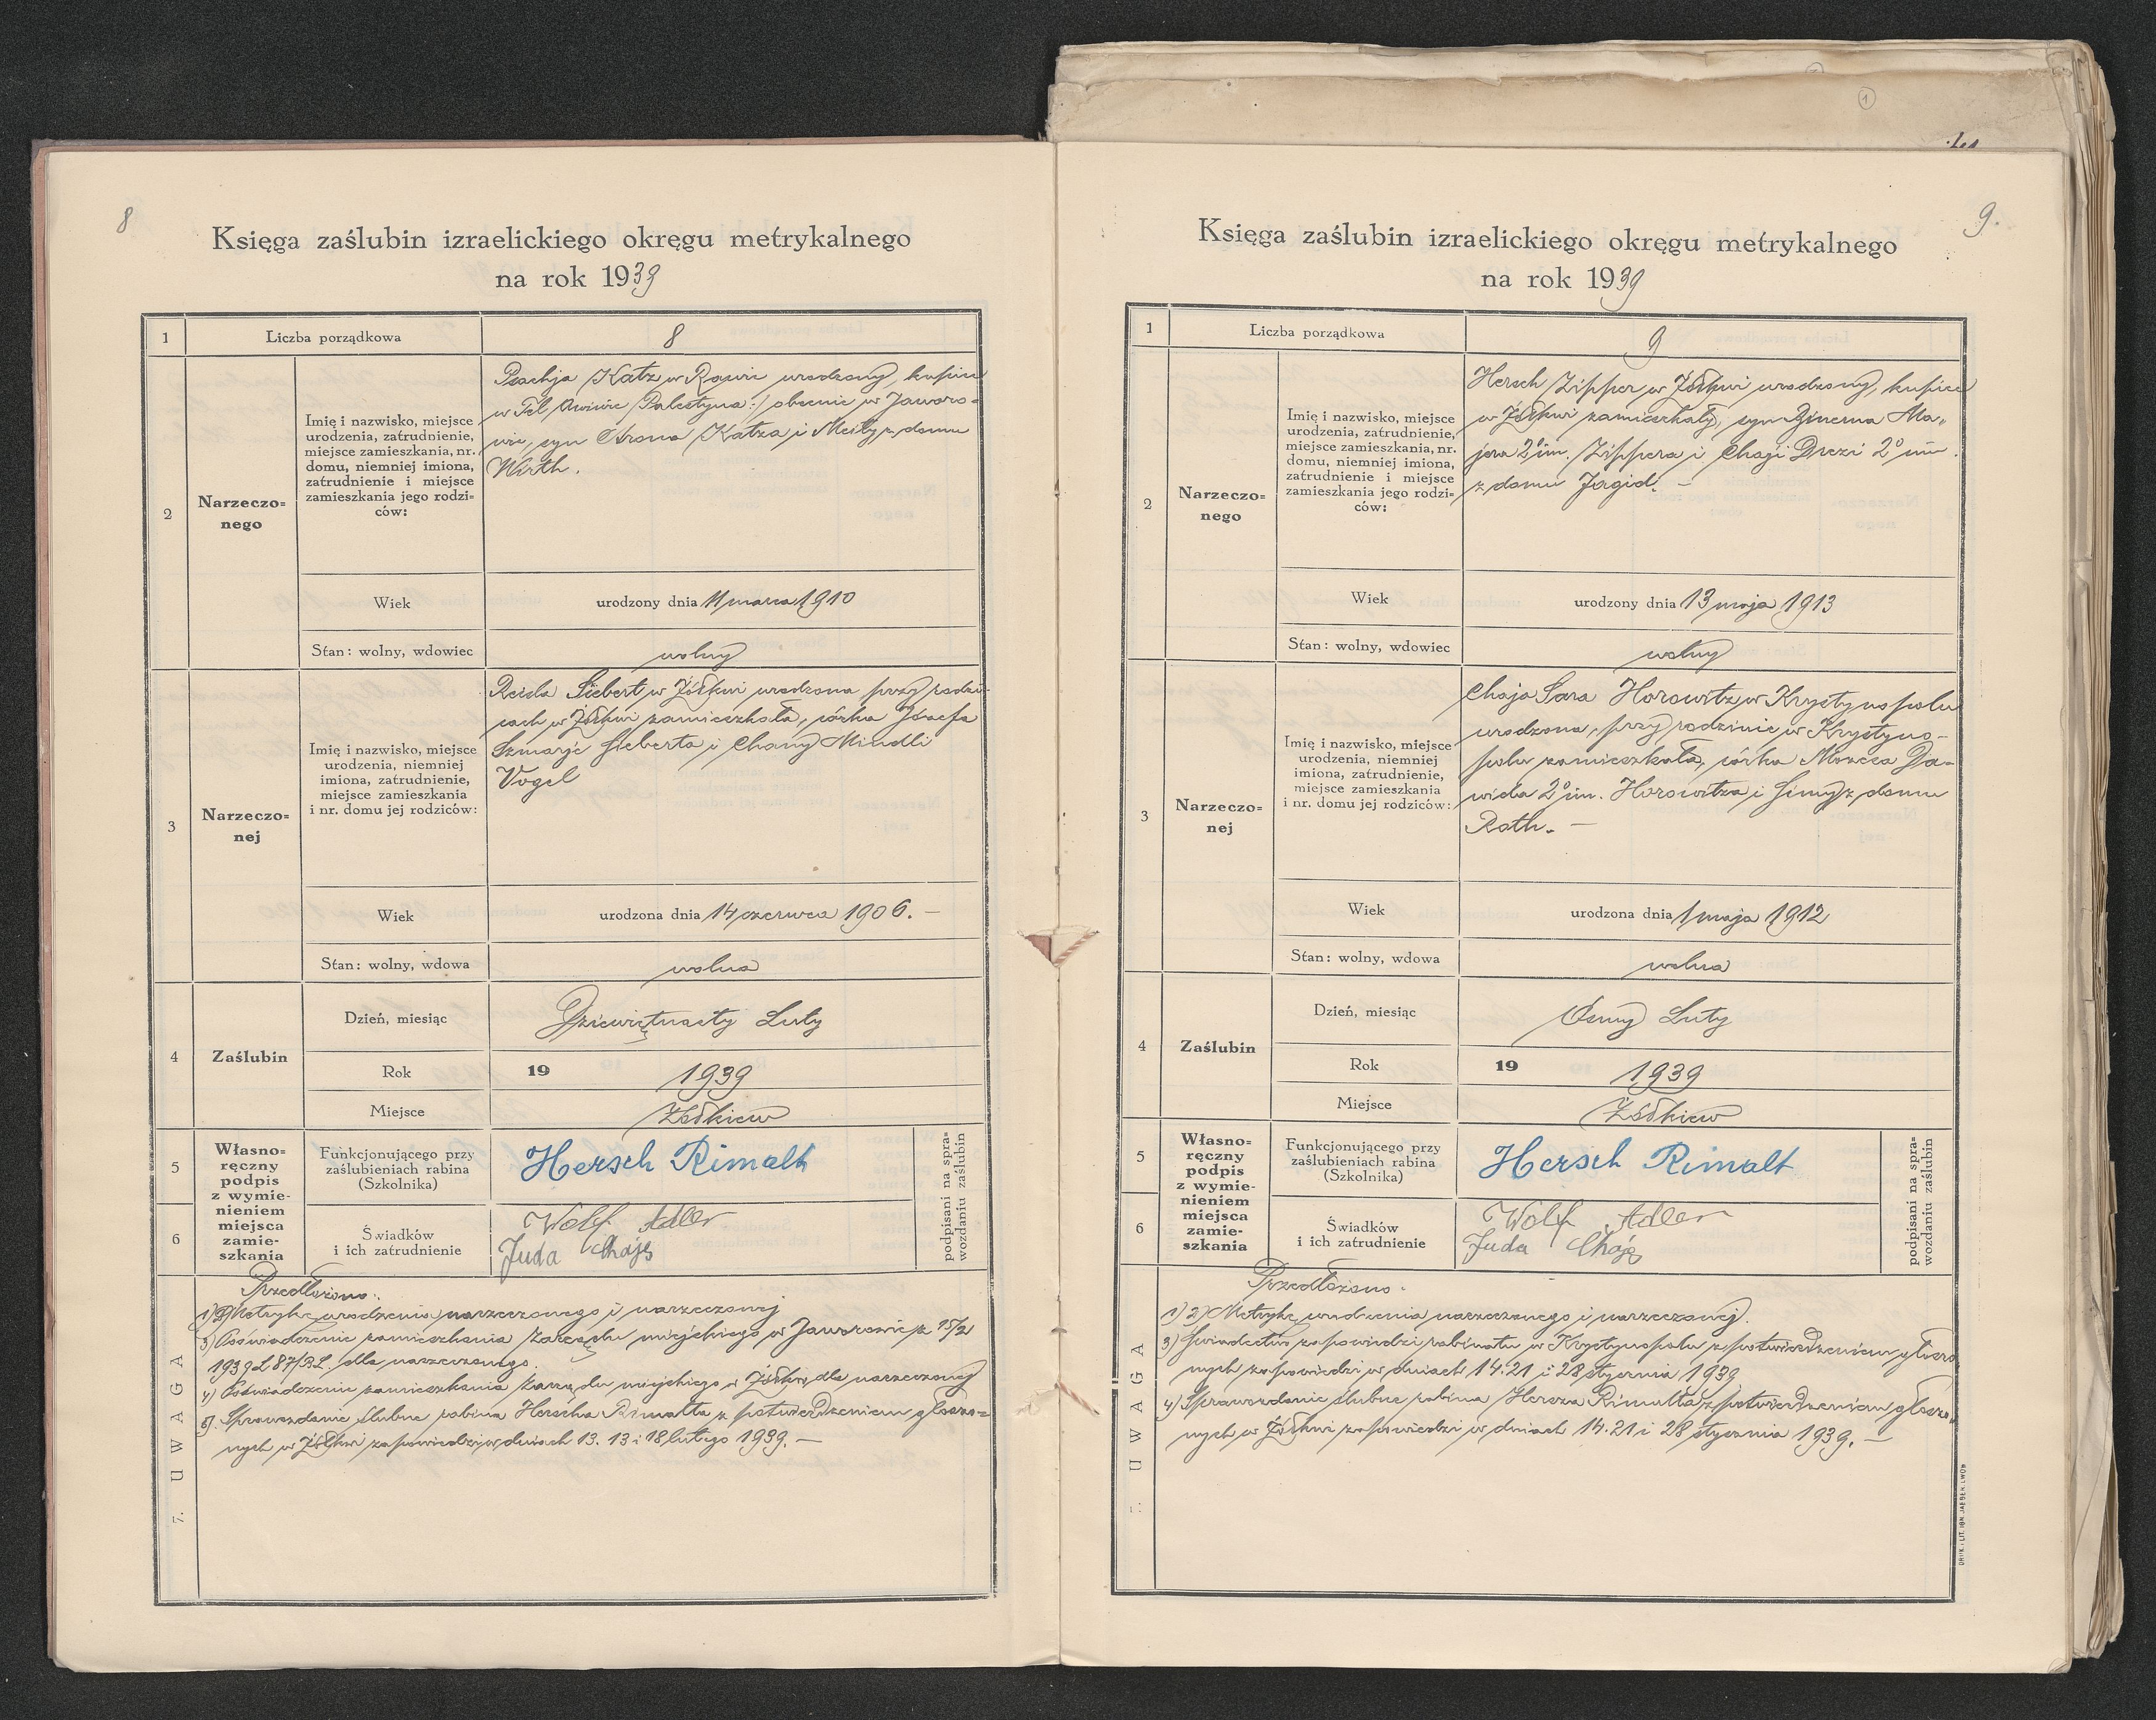 8
Księga zaślubin izraelickiego okręgu metrykalnego
na rok 1939
1
Liczba porządkowa
8
2
Narzeczo=
nego
Imię i nazwisko, miejsce
urodzenia, zatrudnienie,
miejsce zamieszkania, nr.
domu, niemniej imiona,
zatrudnienie i miejsce
zamieszkania jego rodzi=
ców:
Psachja Katz w Rawie urodzony, kupiec
w Tel Awiwie /Palestyna:/ obecnie w Jaworo-
wie, syn Arona Katza i Meity z domu
Wirth.
Wiek
urodzony dnia 11 marca 1910
Stan: wolny, wdowiec
wolny
3
Narzeczo=
nej
Imię i nazwisko, miejsce
urodzenia, niemniej
imiona, zatrudnienie,
miejsce zamieszkania
i nr. domu jej rodziców:
Reisla Siebert w Żółkwi urodzona przy rodzi-
cach w Żółkwi zamieszkała, córka Józefa
Szmarje Sieberta i Chany Mindli
Vogel
Wiek
urodzona dnia 14 czerwca 1906. —
Stan: wolny, wdowa
wolna
4
Zaślubin
Dzień, miesiąc
Dziewiętnasty Luty
Rok
19 1939
Miejsce
Żółkiew
5
6
Własno=
ręczny
podpis
z wymie=
nieniem
miejsca
zamie=
szkania
Funkcjonującego przy
zaślubieniach rabina
(Szkolnika)
Hersch Rimalt
Świadków
i ich zatrudnienie
Wolf Adler
Juda Chajes
podpisani na spra=
wozdaniu zaślubin
7. UWAGA
Przedłożono:
1) 2) Metrykę urodzenia narzeczonego i narzeczonej
3) Poświadczenie zamieszkania Zarządu miejskiego w Jaworowie z 15/2
1939 L 87/B.L. dla narzeczonego.
4) Poświadczenie zamieszkania Zarządu miejskiego w Żółkwi dla narzeczonej
5). Sprawozdanie ślubne rabina Herscha Rimalta z potwierdzeniem głoszo=
nych w Żółkwi zapowiedzi w dniach 13. 13 i 18 lutego 1939. —
9.
Księga zaślubin izraelickiego okręgu metrykalnego
na rok 1939
1
Liczba porządkowa
9
2
Narzeczo=
nego
Imię i nazwisko, miejsce
urodzenia, zatrudnienie,
miejsce zamieszkania, nr.
domu, niemniej imiona,
zatrudnienie i miejsce
zamieszkania jego rodzi=
ców:
Hersch Zipper w Żółkwi urodzony, kupiec
w Żółkwi zamieszkały, syn Binema Ma-
jera 2º im. Zippera i Chagi Drezi 2º im.
z domu Jagid. —
Wiek
urodzony dnia 13 maja 1913
Stan: wolny, wdowiec
wolny
3
Narzeczo=
nej
Imię i nazwisko, miejsce
urodzenia, niemniej
imiona, zatrudnienie,
miejsce zamieszkania
i nr. domu jej rodziców:
Chaja Sara Horowitz w Krystynopolu
urodzona, przy rodzinie w Krystyno-
polu zamieszkała, córka Mozesa Da-
wida 2º im. Horowitza i Simy z domu
Roth. —
Wiek
urodzona dnia 1 maja 1912
Stan: wolny, wdowa
wolna
4
Zaślubin
Dzień, miesiąc
Ósmy Luty
Rok
19 1939
Miejsce
Żółkiew
5
6
Własno=
ręczny
podpis
z wymie=
nieniem
miejsca
zamie=
szkania
Funkcjonującego przy
zaślubieniach rabina
(Szkolnika)
Hersch Rimalt
Świadków
i ich zatrudnienie
Wolf Adler
Juda Chajes
podpisani na spra=
wozdaniu zaślubin
UWAGA
Przedłożono:
1) 2) Metrykę urodzenia narzeczonego i narzeczonej.
3) Świadectwo zapowiedzi rabinatu w Krystynopolu z potwierdzeniem głoszo
nych zapowiedzi w dniach 14. 21 i 28 stycznia 1939
4) Sprawozdanie ślubne rabina Hersza Rimalta z potwierdzeniem głoszo=
nych w Żółkwi zapowiedzi w dniach 14. 21 i 28 stycznia 1939. —
DRUK. I LIT. IGN. JAEGER, LWÓW